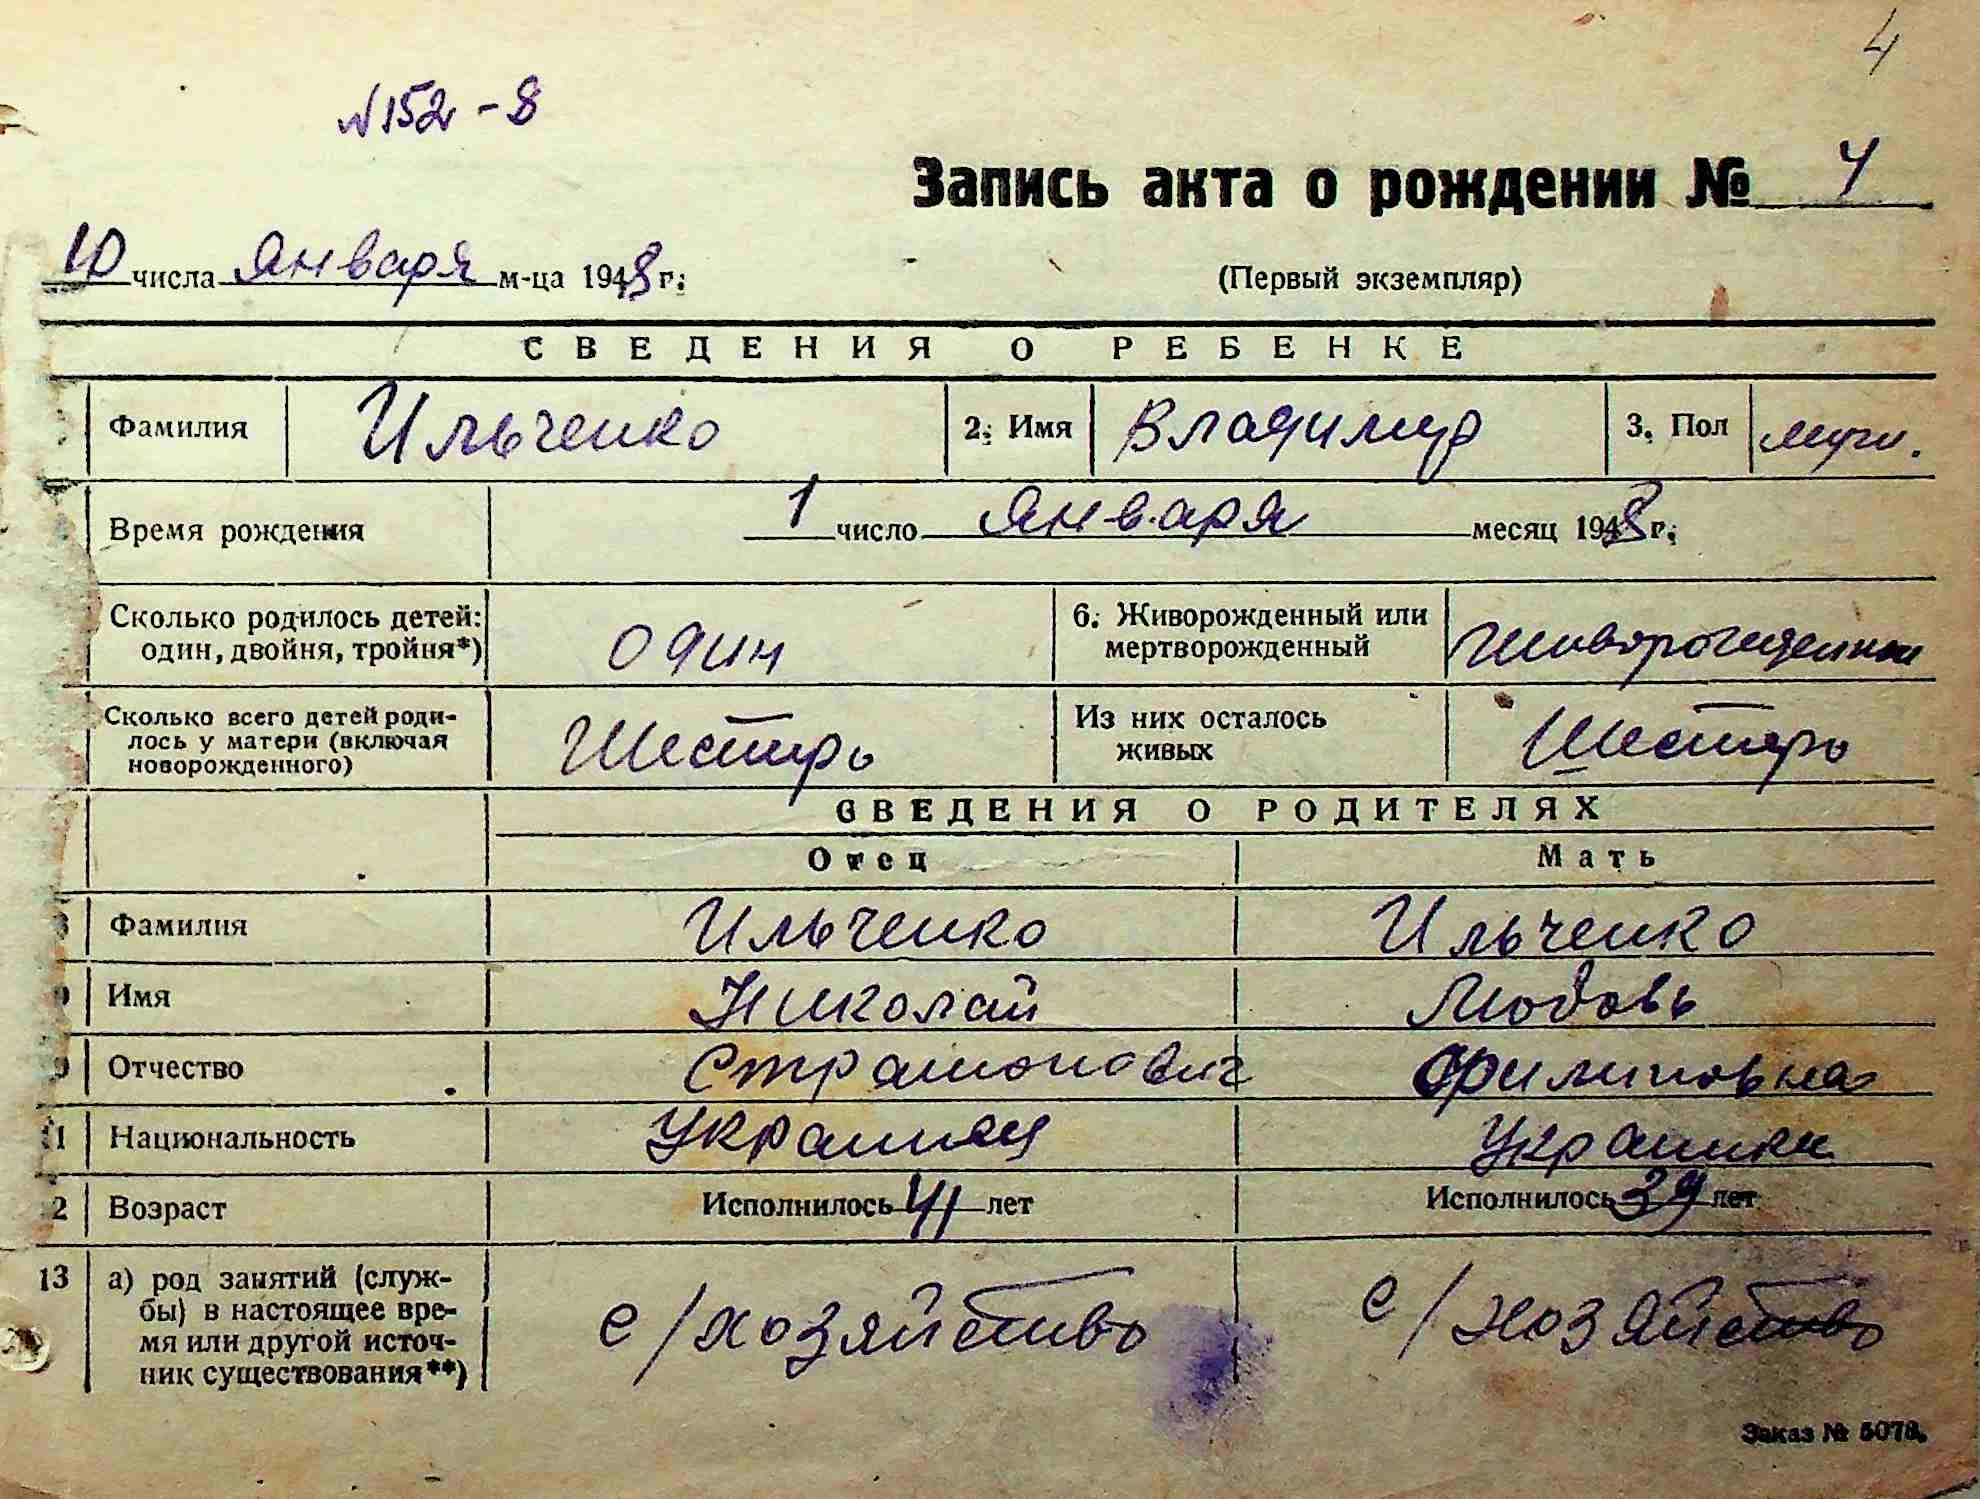 4
№152-8
Запись акта о рождении № 4
10 числа января м-ца 1948 г.
(Первый экземпляр)
СВЕДЕНИЯ О РЕБЕНКЕ
Фамилия Ильченко 2. Имя Владимир 3. Пол муж.
Время рождения 1 число января месяц 1948 г.
Сколько родилось детей: один, двойня, тройня*) один 6. Живорожденный или мертворожденный живорожденный
Сколько всего детей роди-
лось у матери (включая
новорожденного) Шестеро Из них осталось живых Шестеро
СВЕДЕНИЯ О РОДИТЕЛЯХ
Отец Мать
Фамилия Ильченко Ильченко
Имя Николай Любовь
Отчество Филиповна
11 Национальность Украинец Украинка
2 Возраст Исполнилось 41 лет Исполнилось 39 лет
13 а) род занятий (служ-
бы) в настоящее вре-
мя или другой источ-
ник существования**) с/хозяйство с/хозяйство
Заказ № 5078.